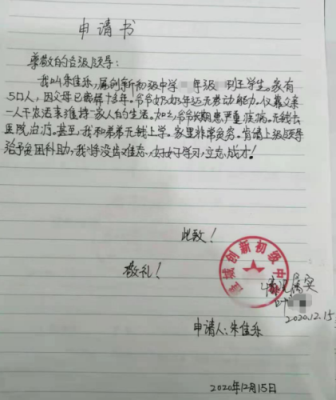 申请书
尊敬的各级领导：
我叫朱佳乐，属创新初级中学 年级 班学生。家有
5口人，因父母已离异十多年。爷爷奶奶年迈无劳动能力。仅靠父亲
一人干农活来维持一家人的生活。如今爷爷长期患严重疾病，无钱去
医院治疗。甚至，我和弟弟无钱上学。家里非常贫穷。肯请上级领导
给予贫困补助，我将没齿难忘，好好学习，立志成才！
此致！
敬礼！
创新初级中学
情况属实
2020.12.15
申请人：朱佳乐
2020年12月15日